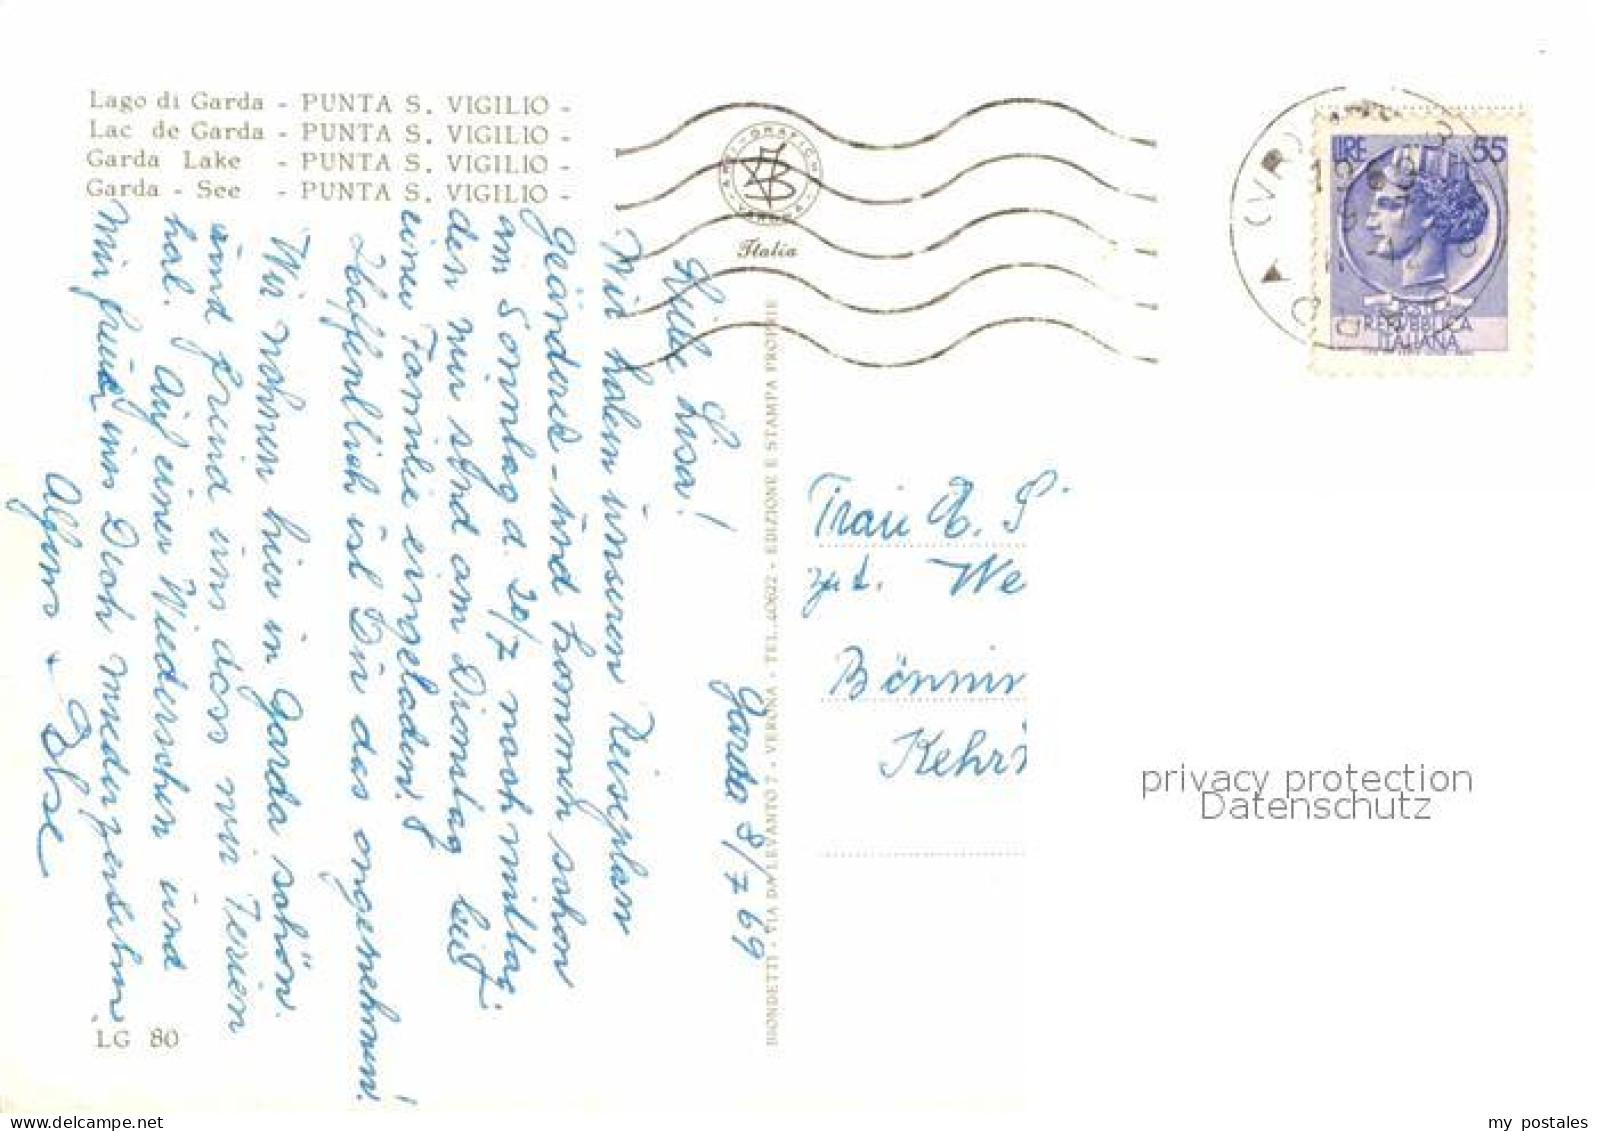 Lago di Garda - PUNTA S. VIGILIO -
Lac de Garda - PUNTA S. VIGILIO -
Garda Lake - PUNTA S. VIGILIO -
Garda - See - PUNTA S. VIGILIO -
Italia
LIRE 55
POSTE
REPVBBLICA
ITALIANA
Garda 8/7 69
Lisa!
Wir haben unseren Reiseplan
geändert - und kommen schon
am Sonntag d. 20/7 nachmittag.
der mir sind am Dienstag bei
einer Familie eingeladen.
Hoffentlich ist Dir das angenehm!
Wir wohnen hier in Garda schön
und freut uns dass wir Ferien
hat. Auf einer Wiedersehen und
wir freuen uns Dich wiederzusehen.
+ Ilse
BIONDETTI - VIA DA LEVANTO 7 - VERONA - TEL. 40622 - EDIZIONE E STAMPA PROPRIE
Frau E. S
zzt. We
Bönnin
Kehr
LG 80
privacy protection
Datenschutz
my postales